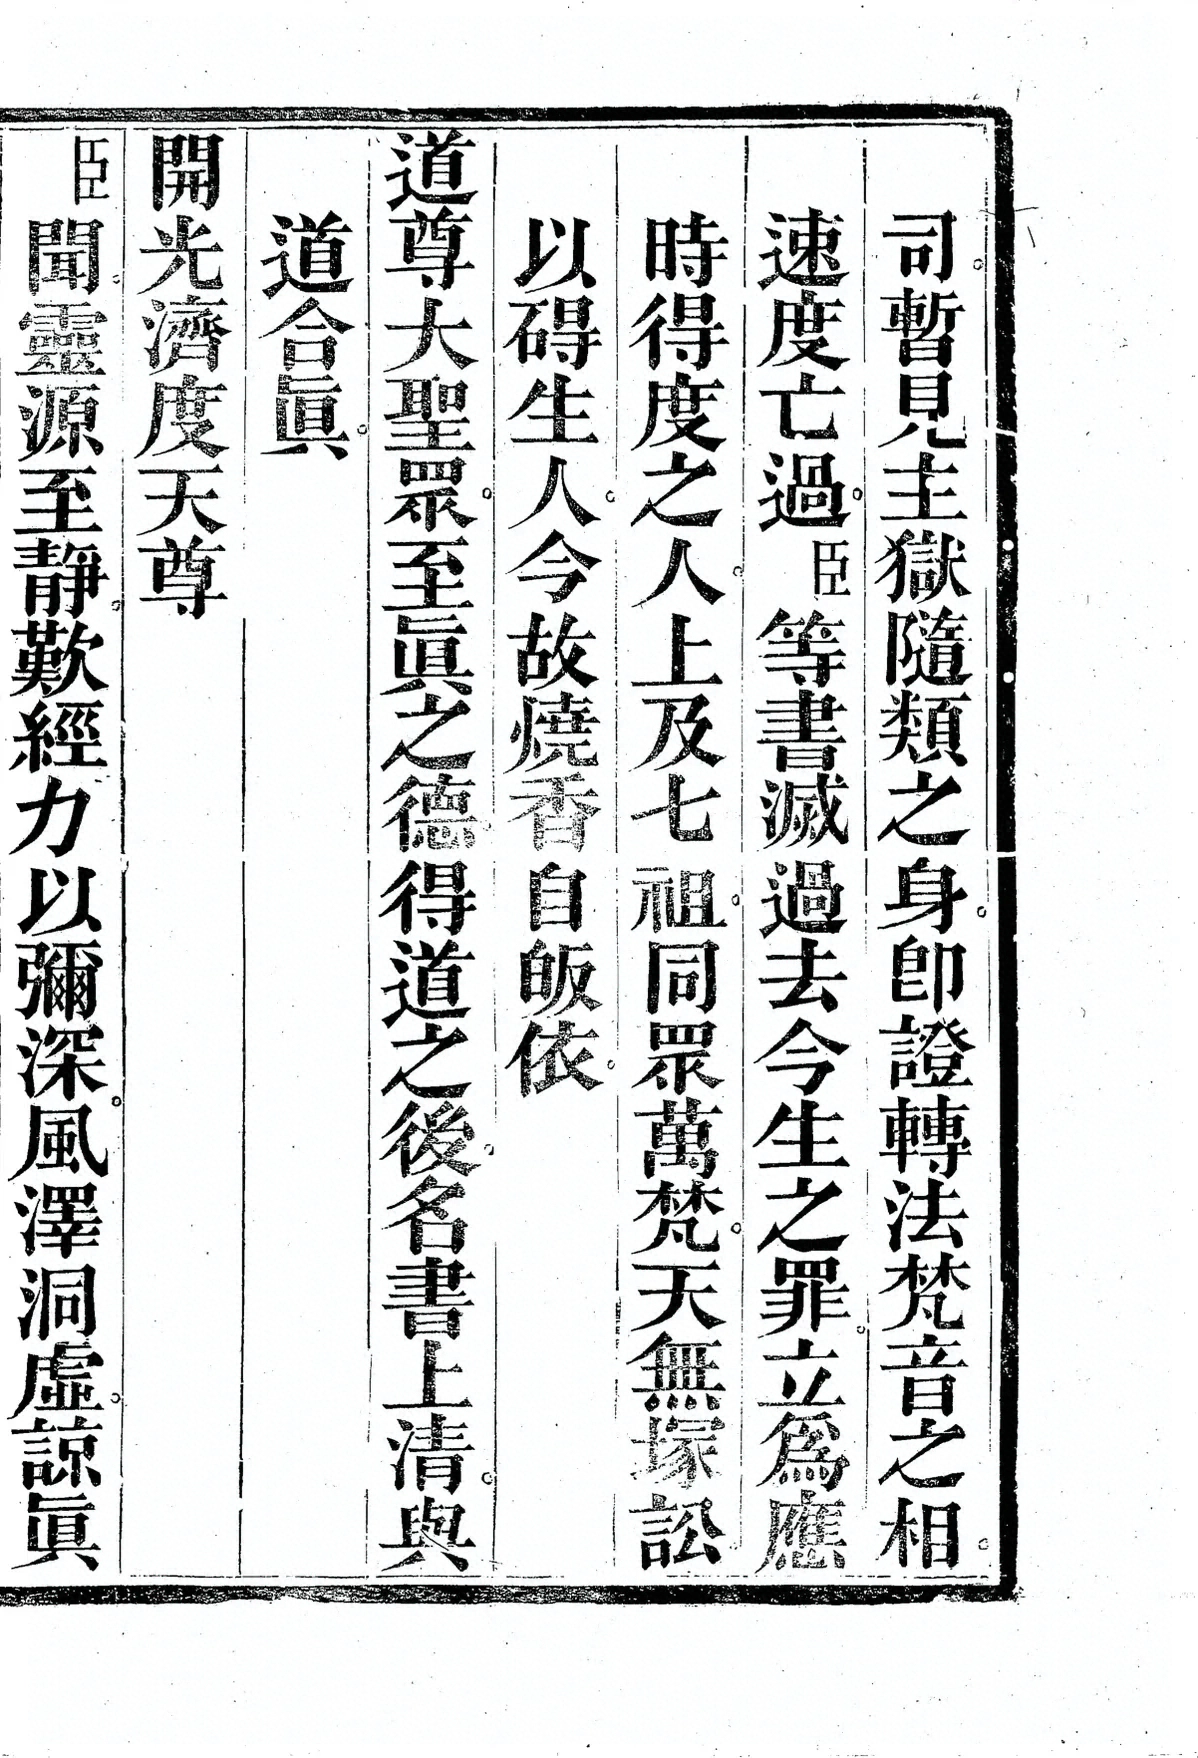 司暫見主獄隨類之身卽證轉法梵音之相
速度亡過臣等書滅過去今生之罪立爲應
時得度之人上及七祖同眾萬梵天無塚訟
以碍生人今故燒香自皈依
道尊大聖眾至眞之德得道之後名書上清與
道合眞
開光濟度天尊
臣聞靈源至靜歎經力以彌深風澤洞虛諒眞